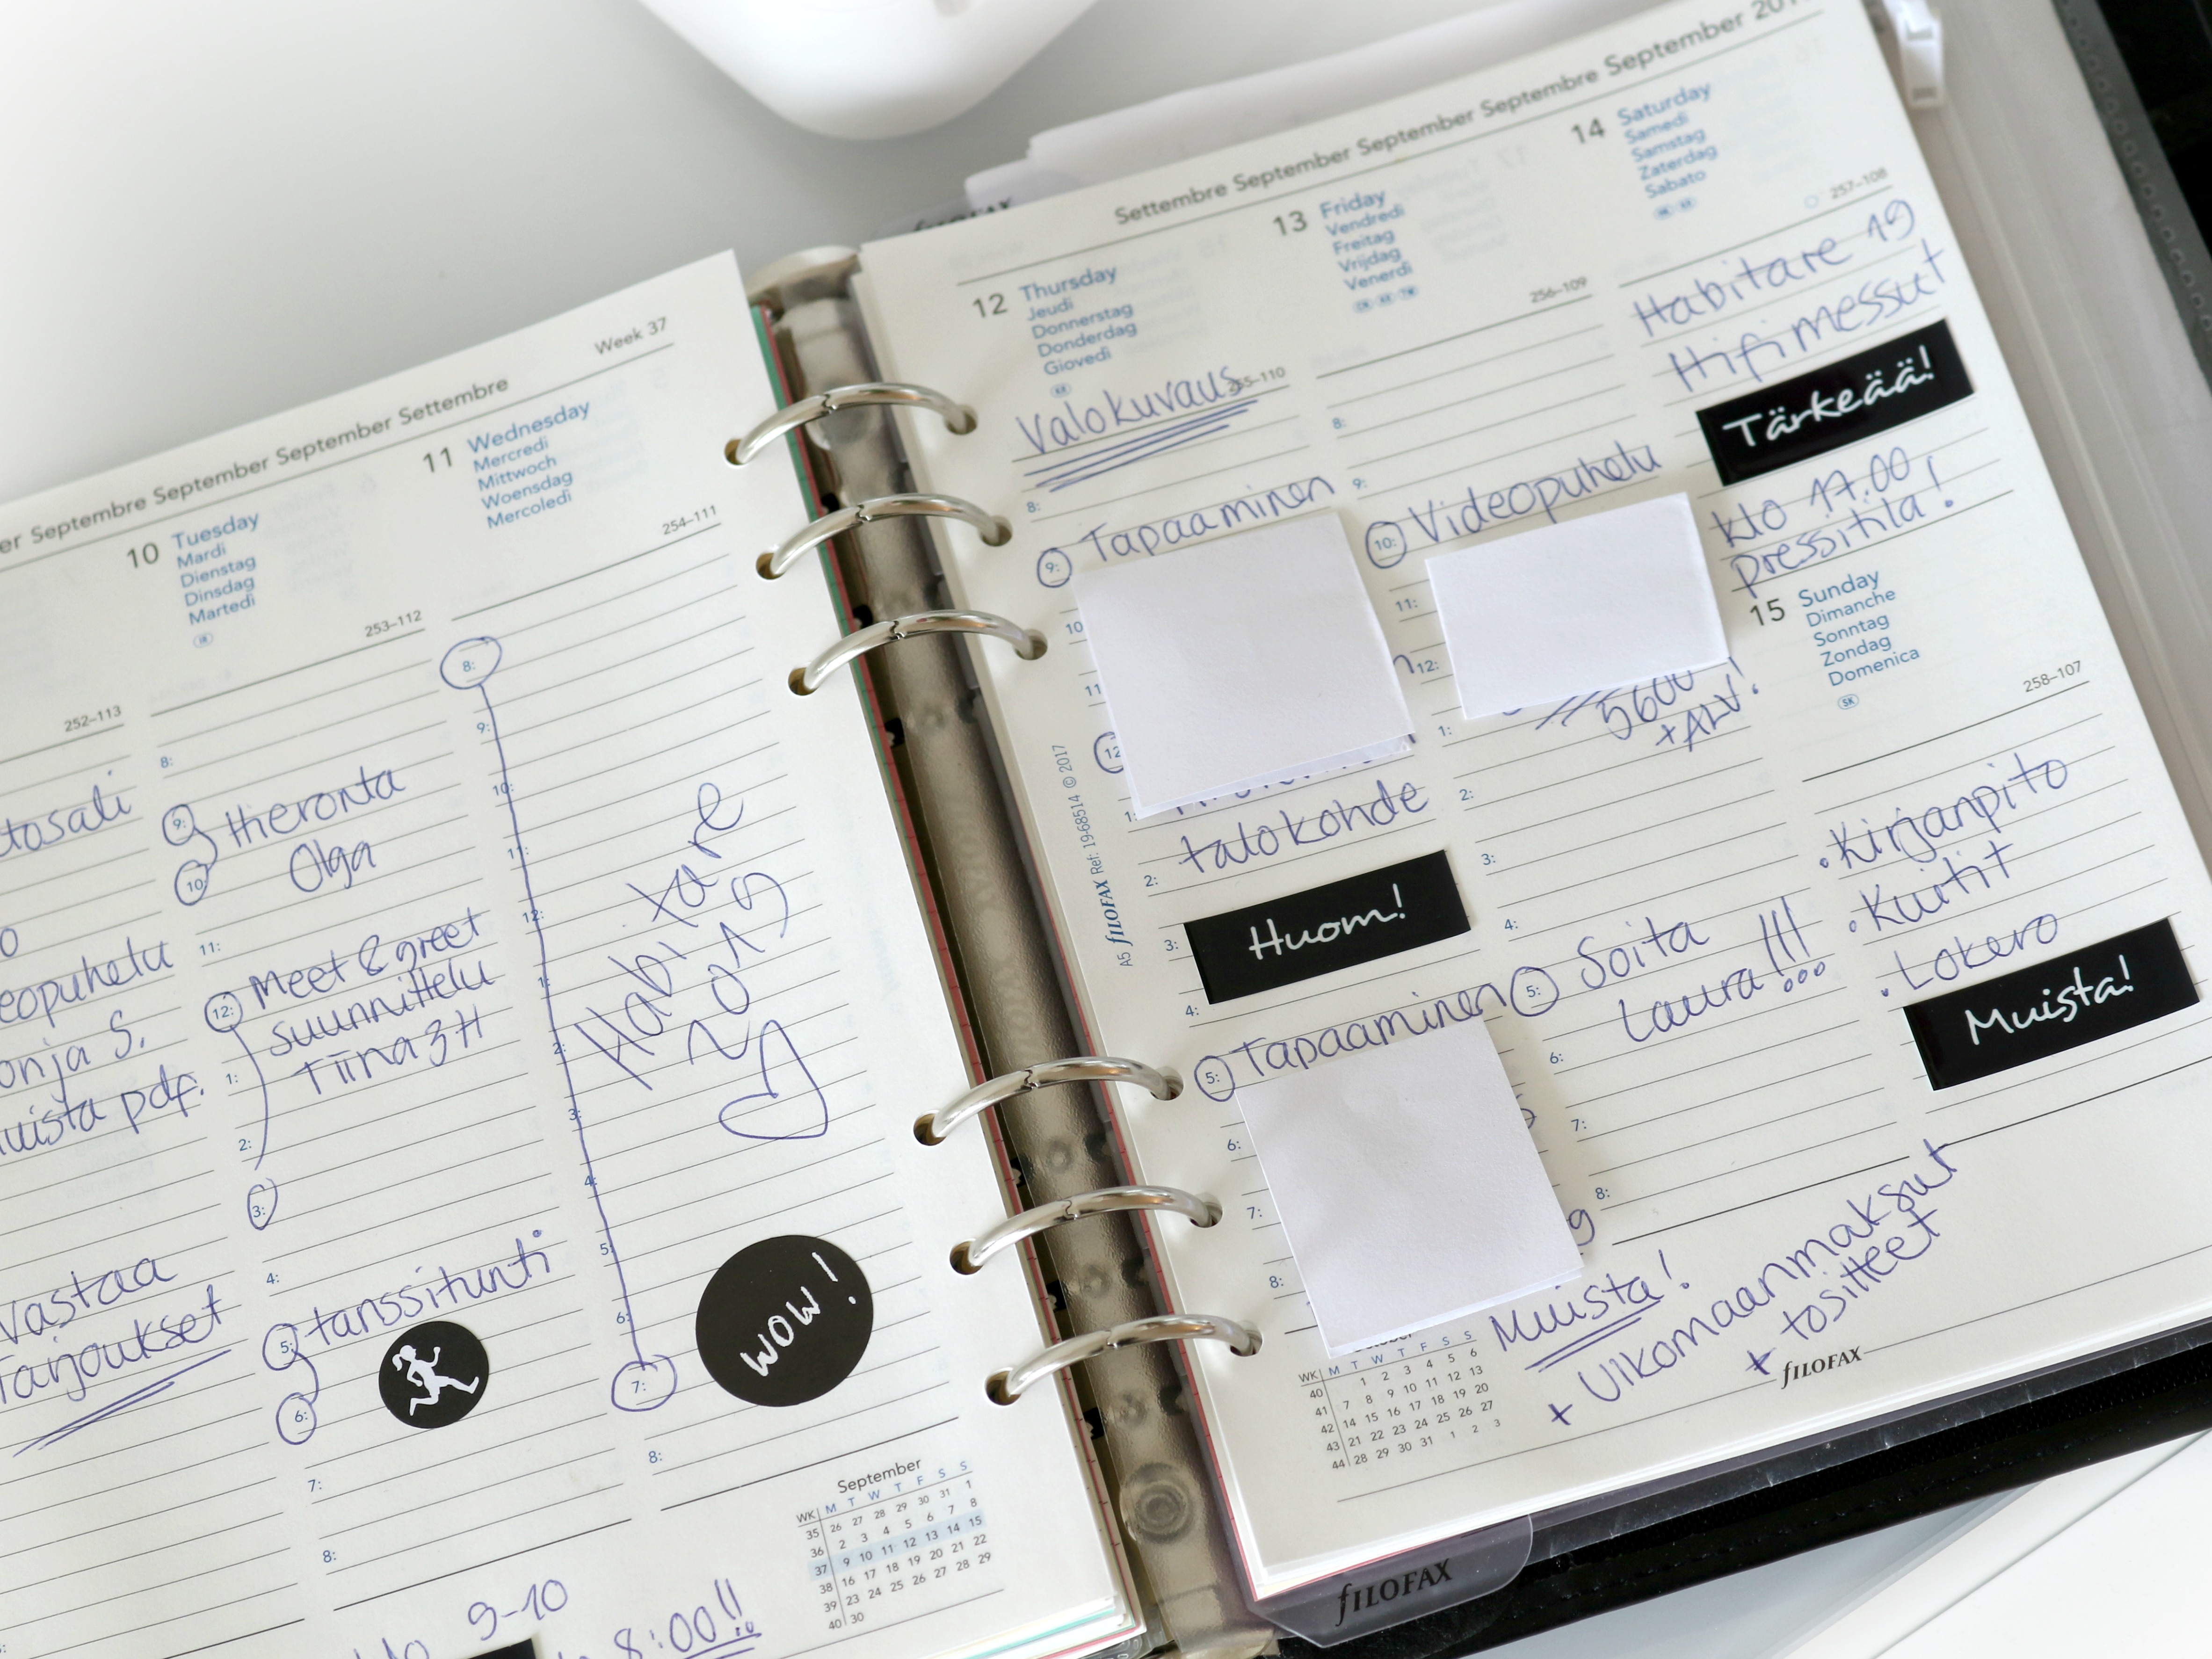 Week 37
Septembre September September Settembre
10 Tuesday
Mardi
Dienstag
Dinsdag
Martedì
11 Wednesday
Mercredi
Mittwoch
Woensdag
Mercoledì
252–113
253–112
254–111
Videopuhelu
S.
pdf.
Vastaa
Tarjoukset
8:
9: Hieronta
10: Olga
11:
12: Meet & greet
suunnittelu
1: Tiina 3H
2:
3:
4:
5: tanssitunti
6:
7:
8:
9-10
8:
9:
10:
11:
12:
1:
2:
3:
4:
5:
6:
7:
8:
Habitare
2019
WOW!
8:00!!
September
WK M T W T F S S
35 26 27 28 29 30 31 1
36 2 3 4 5 6 7 8
37 9 10 11 12 13 14 15
38 16 17 18 19 20 21 22
39 23 24 25 26 27 28 29
40 30
FILOFAX
Settembre September Septembre September September
12 Thursday
Jeudi
Donnerstag
Donderdag
Giovedì
Valokuvaus
255–110
8:
9: Tapaaminen
10
11
12
1:
talokohde
2:
3: Huom!
4:
5: Tapaaminen
6:
7:
8:
13 Friday
Vendredi
Freitag
Vrijdag
Venerdì
256–109
8:
9:
10: Videopuhelu
11:
12:
5600
+ALV!
1:
2:
3:
4:
5: Soita
Laura!!!
6:
7:
8:
14 Saturday
Samedi
Samstag
Zaterdag
Sabato
257–108
Habitare 19
Hifimessut
Tärkeää!
klo 17.00
pressitila!
15 Sunday
Dimanche
Sonntag
Zondag
Domenica
258–107
• Kirjanpito
• Kuitit
• Lokero
Muista!
WK M T W T F S S
40 1 2 3 4 5 6
41 7 8 9 10 11 12 13
42 14 15 16 17 18 19 20
43 21 22 23 24 25 26 27
44 28 29 30 31 1 2 3
Muista!
+ Ulkomaanmaksut
+ tositteet
FILOFAX
A5 FILOFAX Ref: 19-68514 © 2017
FILOFAX